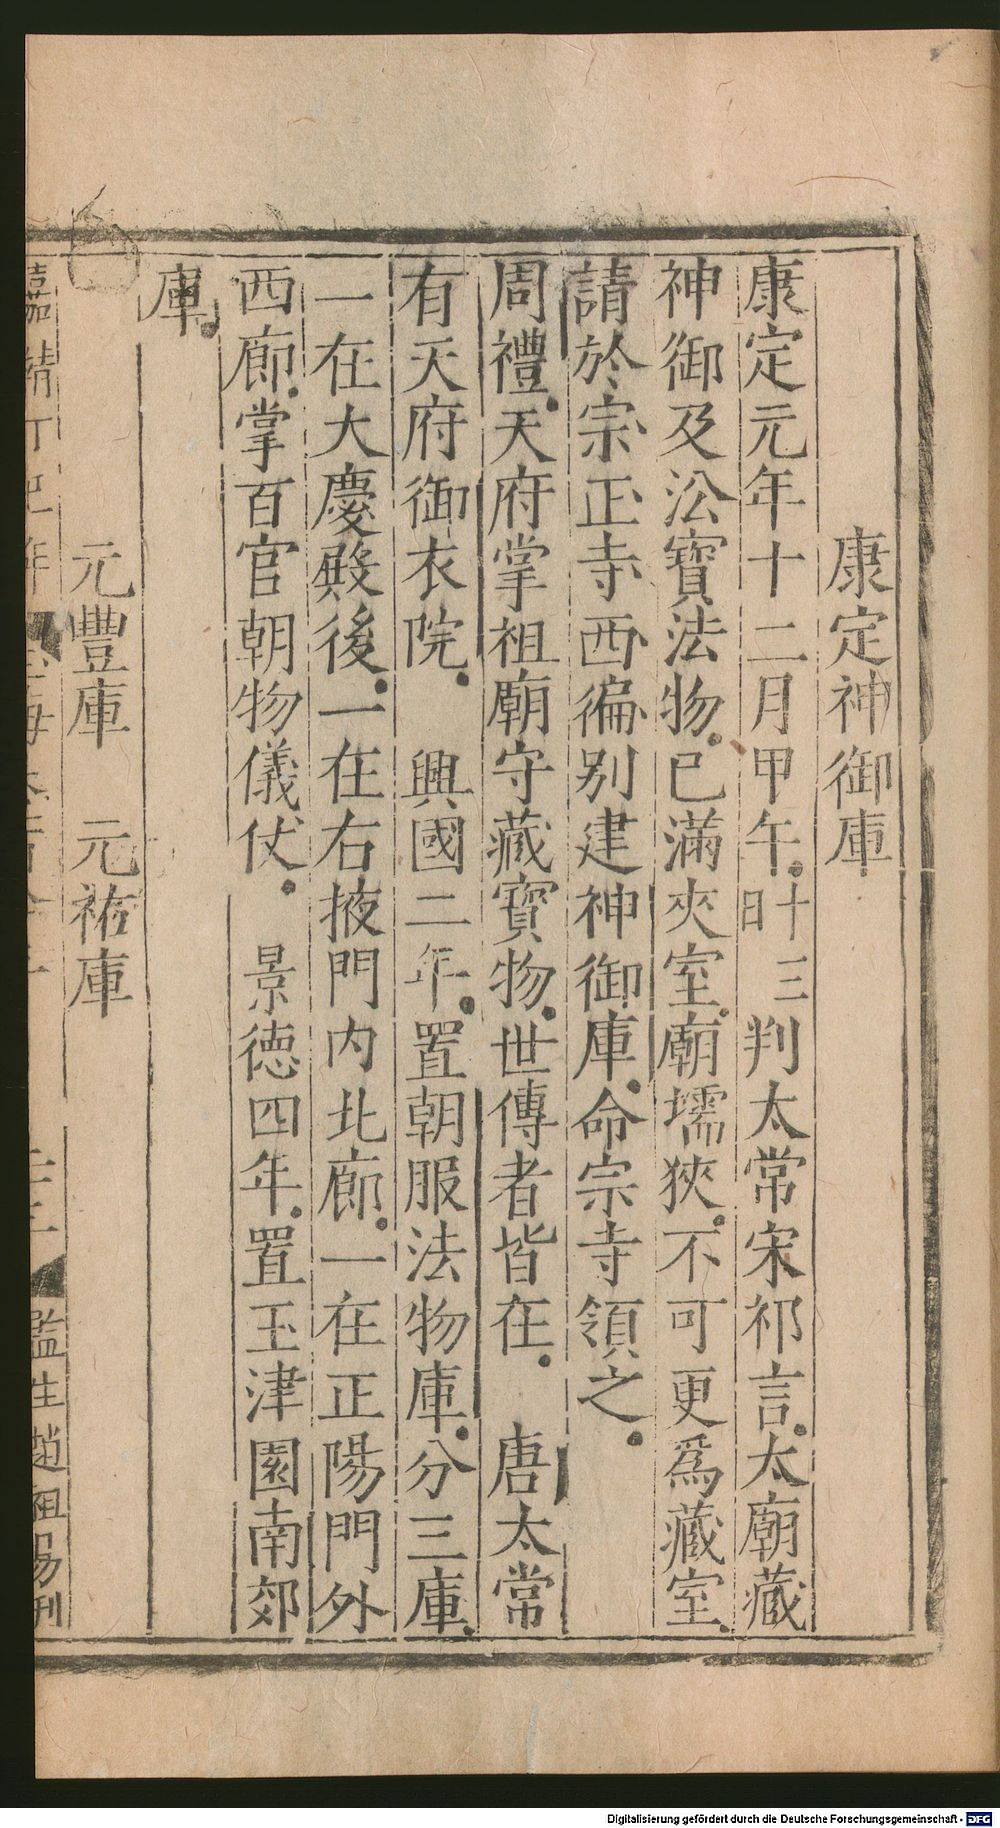 康定神御庫
康定元年十二月甲午十三日判太常宋祁言太廟藏
神御及㳂寶法物已滿夾室廟壖狹不可更爲藏室
請於宗正寺西徧別建神御庫命宗寺領之
周禮天府掌祖廟守藏寶物世傳者皆在　唐太常
有天府御衣院　興國二年置朝服法物庫分三庫
一在大慶殿後一在右掖門内北廊一在正陽門外
西廊掌百官朝物儀仗　景德四年置玉津園南郊
庫
元豐庫　元祐庫
嘉靖丁巳年
監生趙祖昜刊
Digitalisierung gefördert durch die Deutsche Forschungsgemeinschaft - DFG